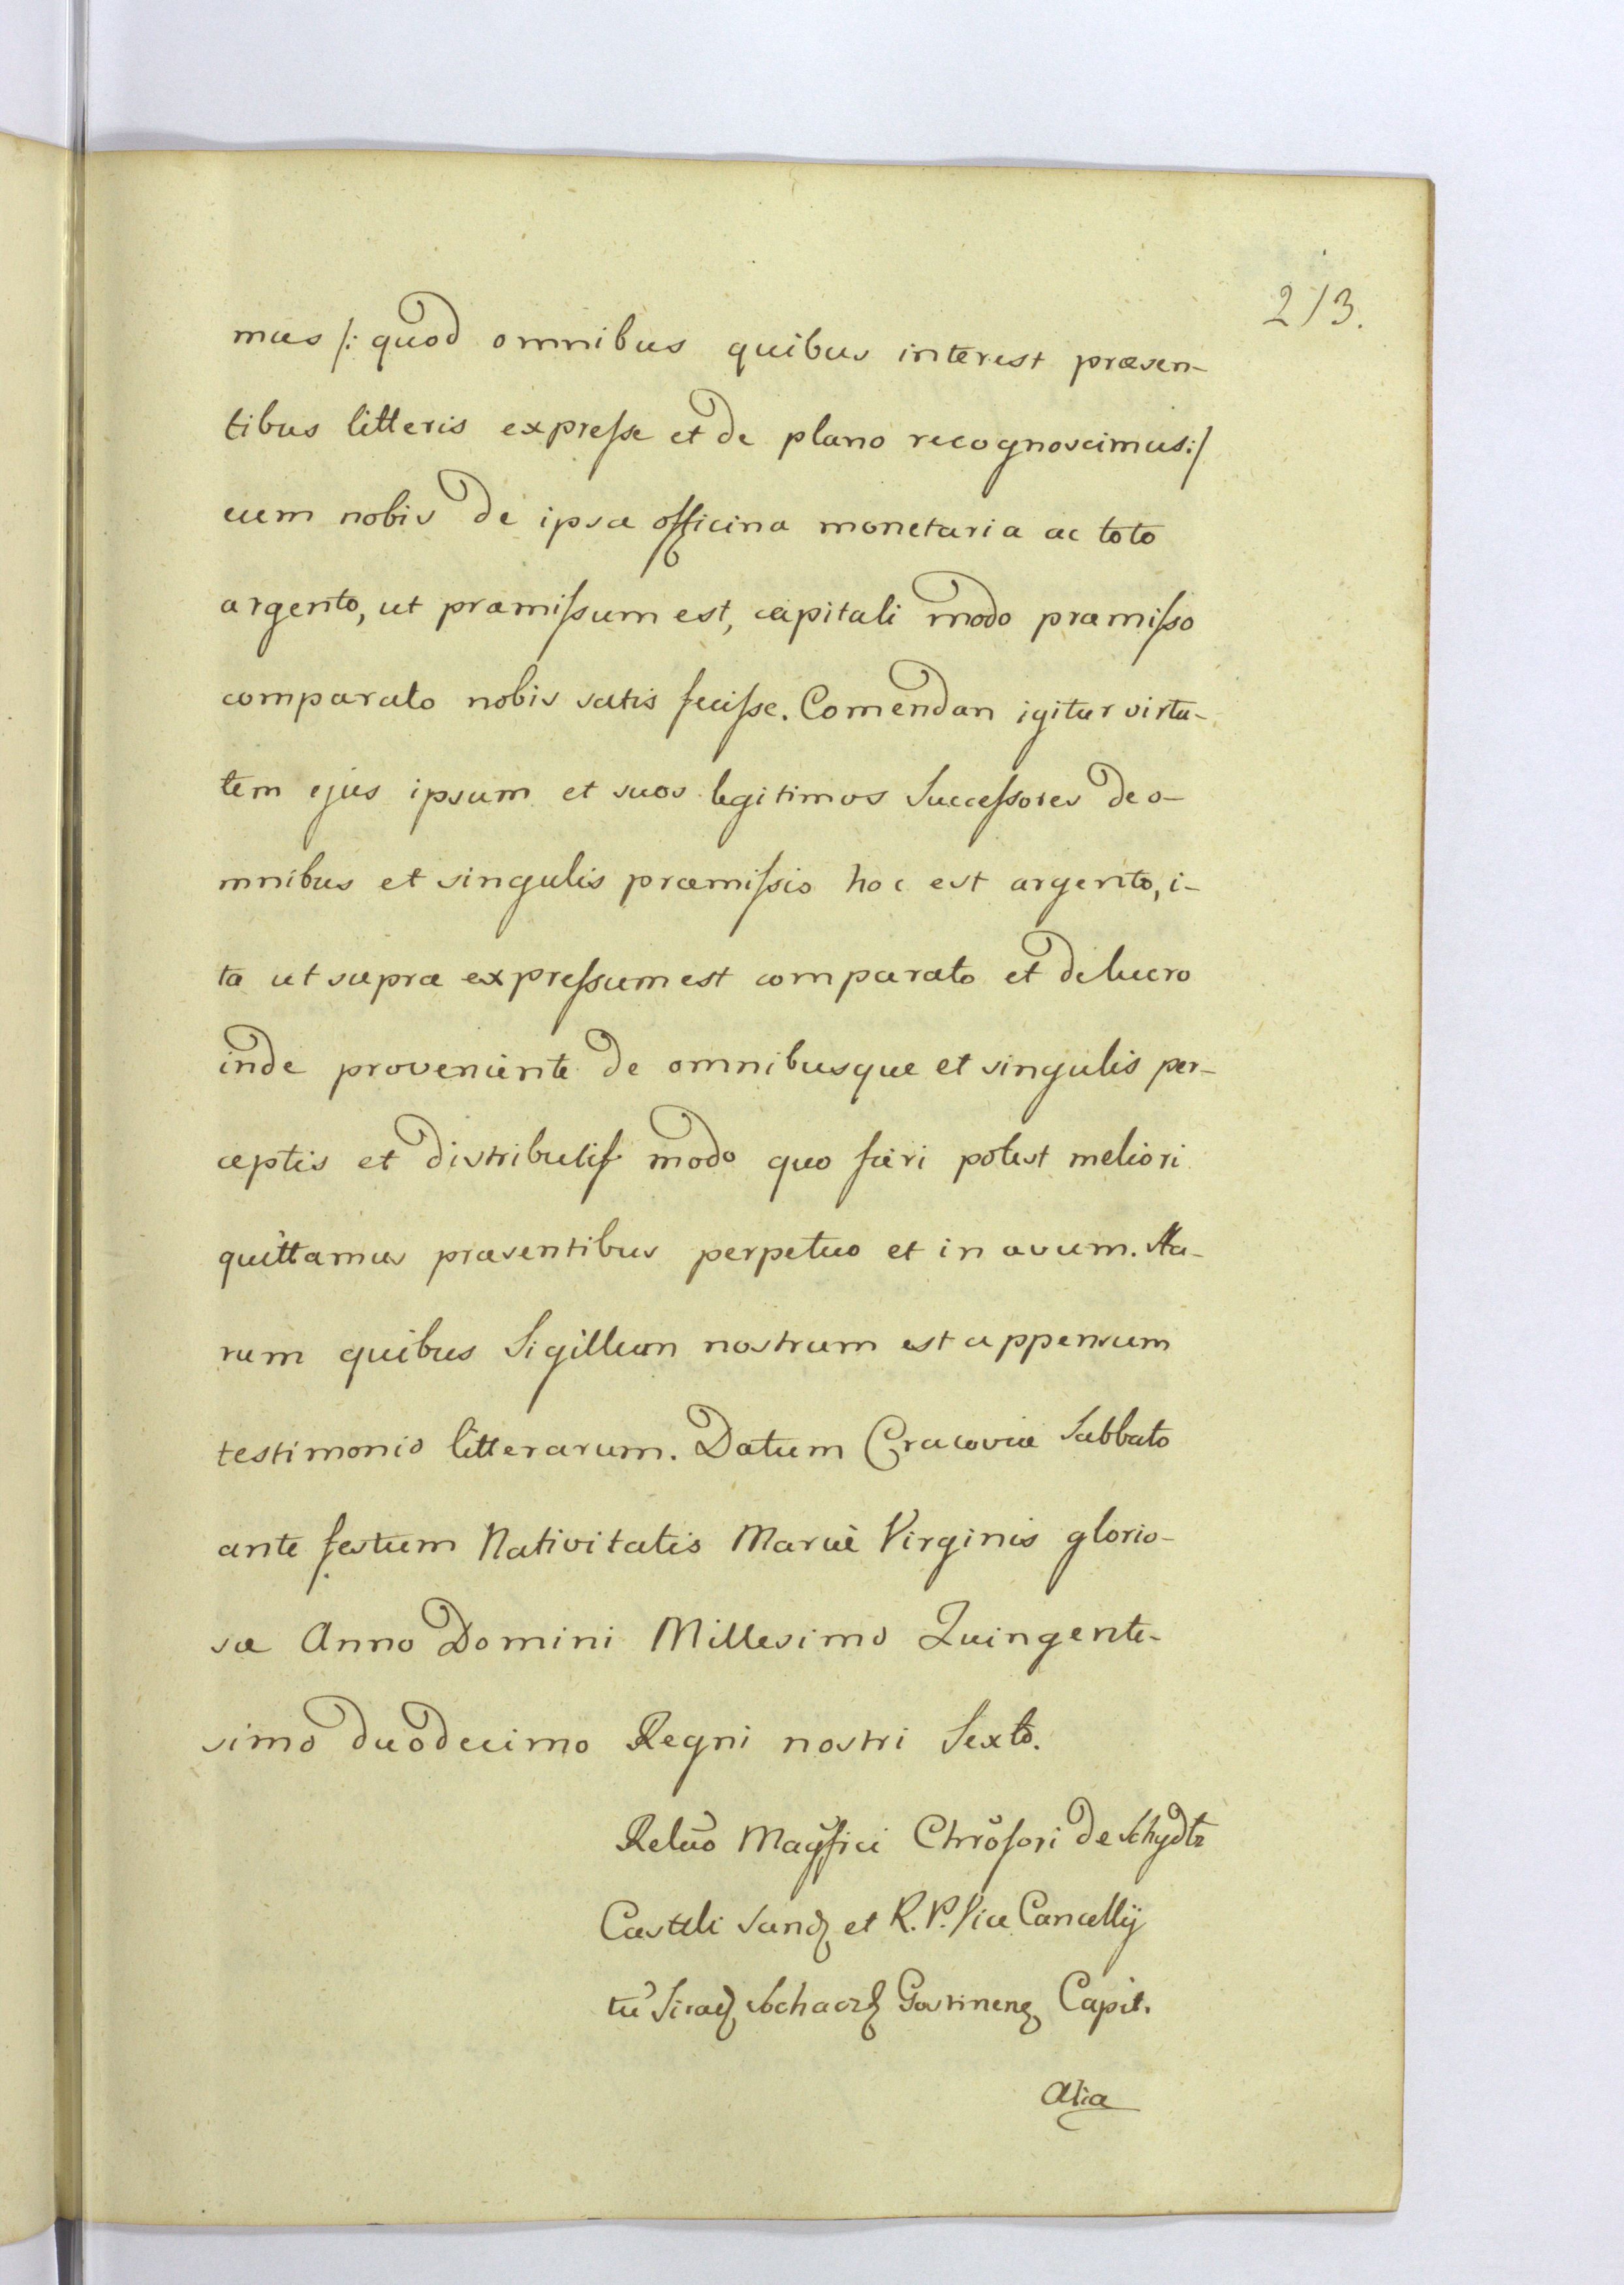 213.
mus /: quod omnibus quibus interest præsen-
tibus litteris expresse et de plano recognoscimus :/
eum nobis de ipsa officina monetaria ac toto
argento, ut præmissum est, capitali modo præmisso
comparato nobis satis fecisse. Comendan igitur virtu-
tem ejus ipsum et suos legitimos Successores de o-
mnibus et singulis præmissis hoc est argento, i-
ta ut supra expressum est comparato et de lucro
inde proveniente de omnibusque et singulis per-
ceptis et distributis modo quo fieri potest meliori
quittamus præsentibus perpetuo et in ævum. Ha-
rum quibus Sigillum nostrum est appensum
testimonio litterarum. Datum Cracoviæ Sabbato
ante festum Nativitatis Mariæ Virginis glorio-
sæ Anno Domini Millesimo Quingente-
simo duodecimo Regni nostri Sexto.
Relĩo Magfici Chrõfori de Schydł
Castelli Sand et R. P. Vice Cancellỹ
Sirad Sochacz Gostinen Capit.
Alia